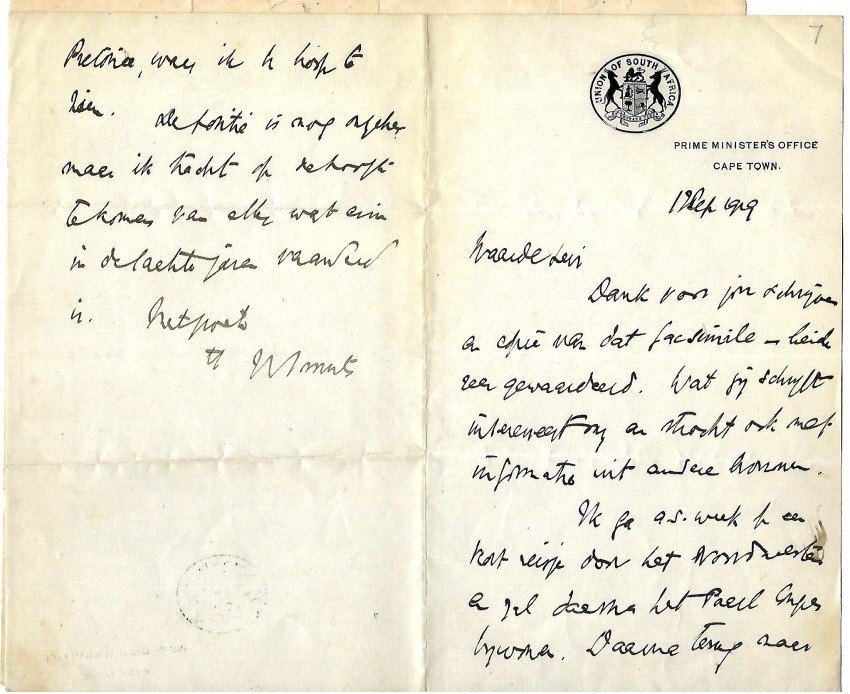 UNION OF SOUTH AFRICA
PRIME MINISTER'S OFFICE
CAPE TOWN.
Sep 1919
Waarde Levi
Dank voor jou schrijven
en copie van dat facsimile – beide
zeer gewaardeerd. Wat jij schryft
interesseert my en strookt ook met
informatie uit andere bronnen.
Ik ga a.s. week op een
kort reisje door het Noordwesten
en zal daarna het Paarl Congres
bywonen. Daarna terug naar
Pretoria, waar ik u hoop te
zien. De positie is nog
maar ik tracht op de hoogte
te komen van alles wat
in de laatste jaren
is. Met groete
tt JC Smuts
7